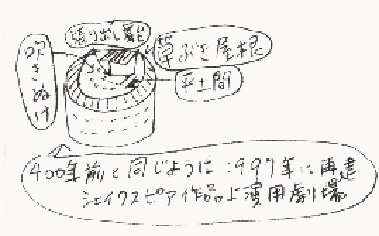 張り出し舞台
吹きぬけ
草ぶき屋根
平土間
400年前と同じように1997年に再建
シェイクスピア作品上演用劇場